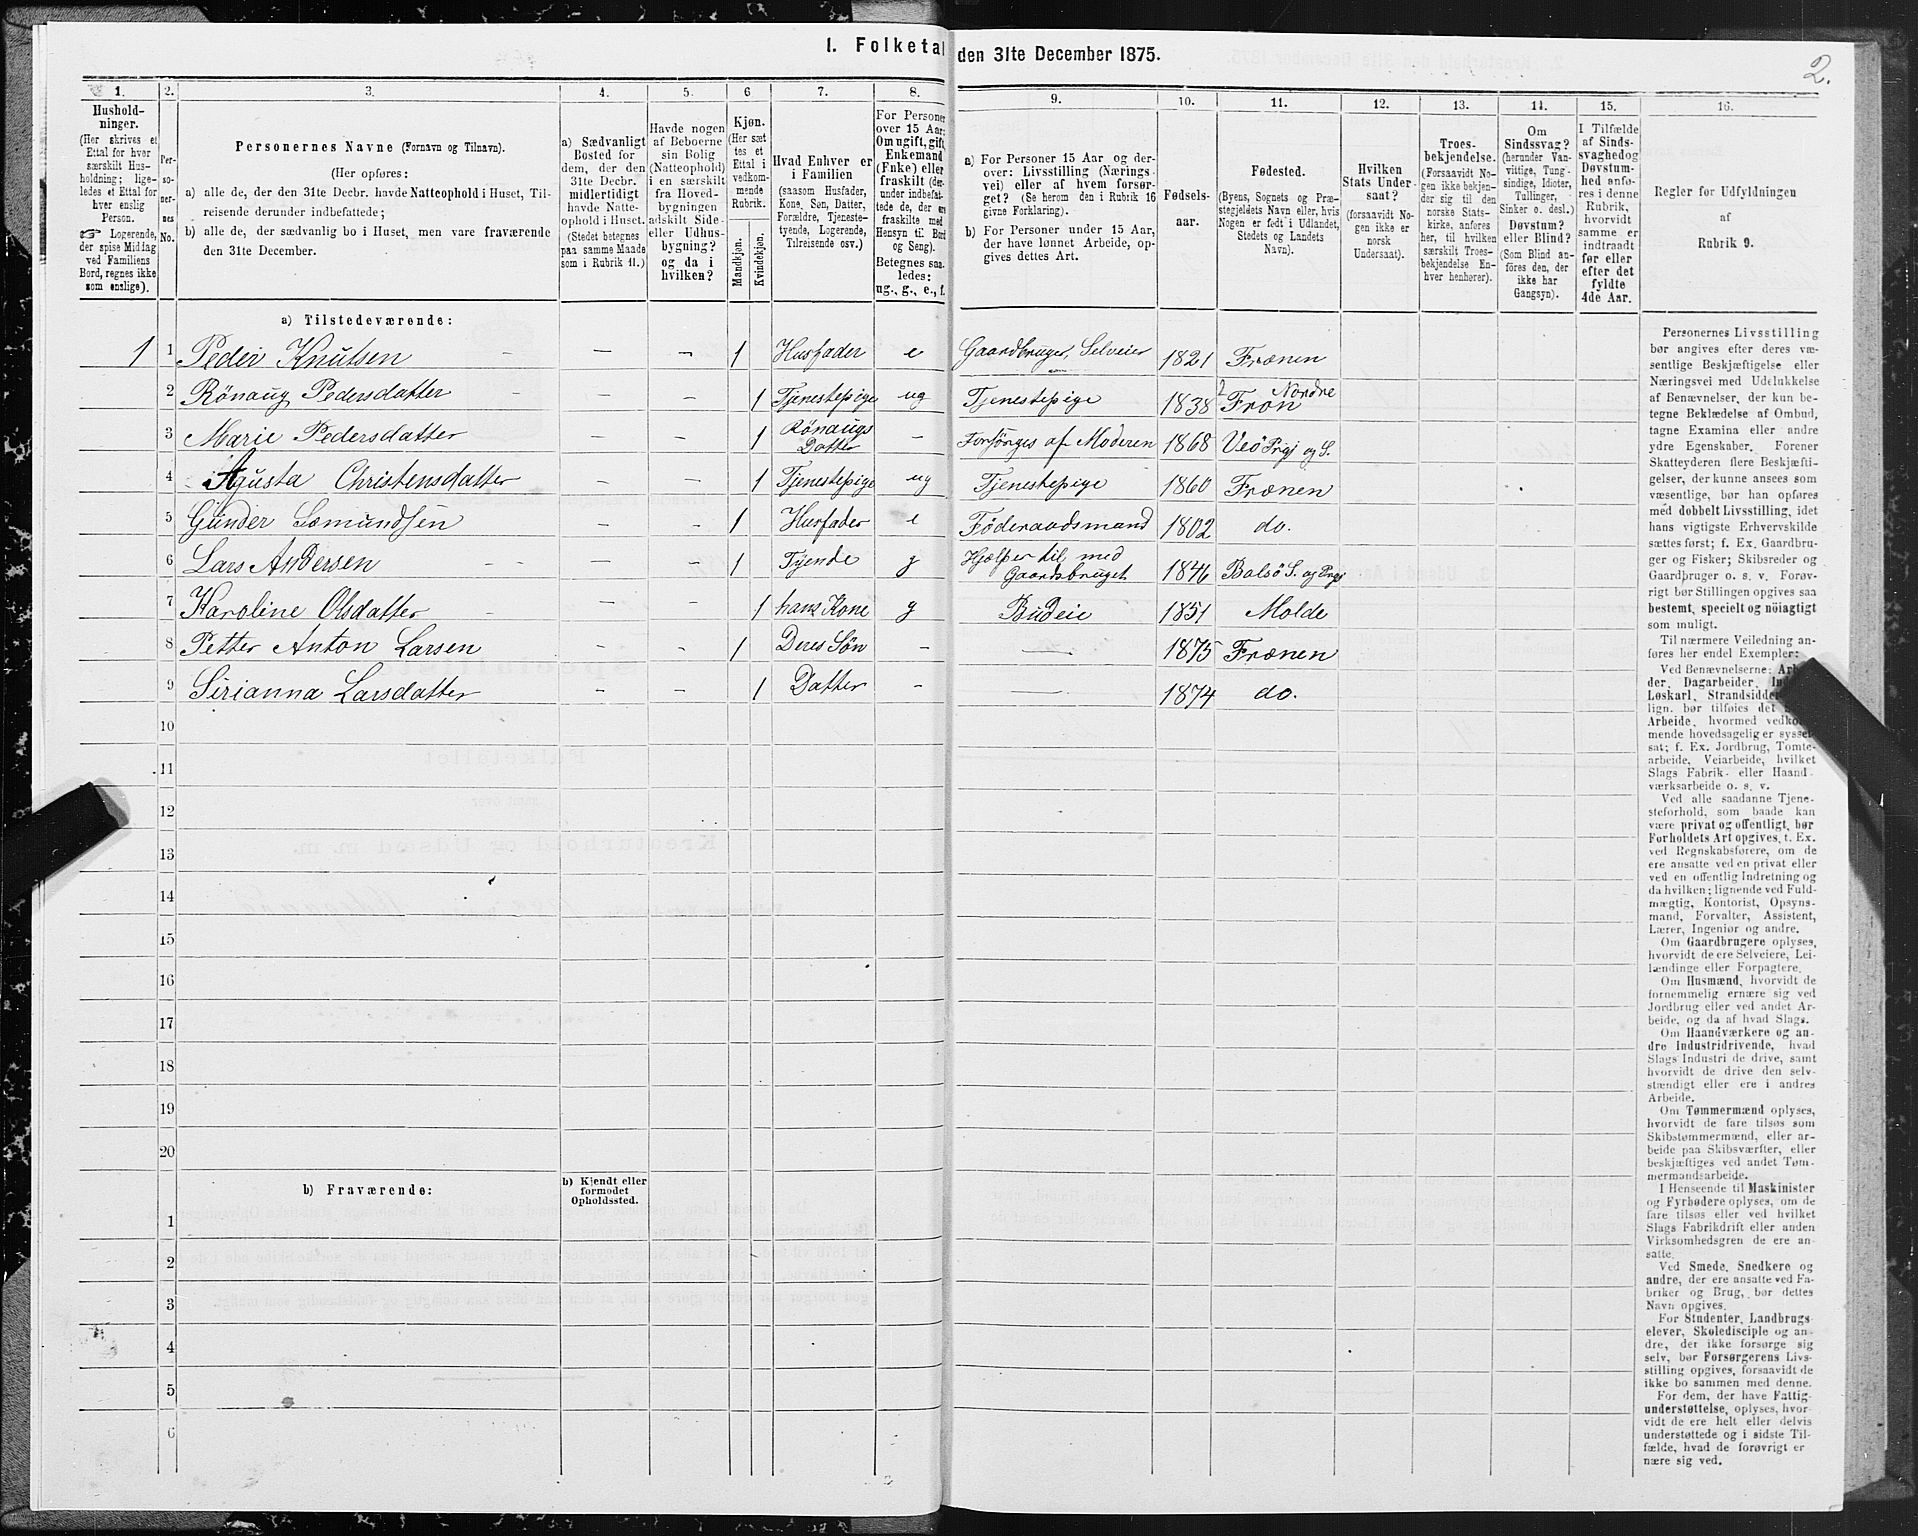 I. Folketal den 31te December 1875.
2.
1. 2. 3. 4. 5. 6 7. 8. 9. 10. 11. 12. 13. 14. 15. 16.
Hushold-
ninger.
(Her skrives et
Ettal for hver
særskilt Hus-
holdning; lige-
ledes et Ettal for
hver enslig
Person.
☞ Logerende,
der spise Middag
ved Familiens
Bord, regnes ikke
som enslige).
Per-
so-
ner-
nes
No.
Personernes Navne (Fornavn og Tilnavn).
(Her opføres:
a) alle de, der den 31te Decbr. havde Natteophold i Huset, Til-
reisende derunder indbefattede;
b) alle de, der sædvanlig bo i Huset, men vare fraværende
den 31te December.
a) Sædvanligt
Bosted for
dem, der den
31te Decbr.
midlertidigt
havde Natte-
ophold i Huset.
(Stedet betegnes
paa samme Maade
som i Rubrik 11.)
Havde nogen
af Beboerne
sin Bolig
(Natteophold)
i en særskilt
fra Hoved-
bygningen
adskilt Side-
eller Udhus-
bygning?
og da i
hvilken?
Kjøn.
(Her sæt
tes et
Ettal i
vedkom-
mende
Rubrik.
Mandkjøn.
Kvindekjøn.
Hvad Enhver er
i Familien
(saasom Husfader,
Kone, Søn, Datter,
Forældre, Tjeneste-
tyende, Logerende,
Tilreisende osv.)
For Personer
over 15 Aar:
Om ugift, gift,
Enkemand
(Enke) eller
fraskilt (der-
under indbefat-
tede de, der ere
fraskilte med
Hensyn til Bord
og Seng).
Betegnes saa-
ledes:
ug., g., e., f.
a) For Personer 15 Aar og der-
over: Livsstilling (Nærings-
vei) eller af hvem forsør-
get? (Se herom den i Rubrik 16
givne Forklaring).
b) For Personer under 15 Aar,
der have lønnet Arbeide, op-
gives dettes Art.
Fødsels-
aar.
Fødested.
(Byens, Sognets og Præ-
stegjeldets Navn eller, hvis
Nogen er født i Udlandet,
Stedets og Landets
Navn).
Hvilken
Stats Under-
saat?
(forsaavidt No-
gen ikke er
norsk
Undersaat).
Troes-
bekjendelse.
(Forsaavidt No-
gen ikke bekjen-
der sig til den
norske Stats-
kirke, anføres
her, til hvilken
særskilt Troes-
bekjendelse En-
hver henhører).
Om
Sindssvag?
(herunder Van-
vittige, Tung-
sindige, Idioter,
Tullinger,
Sinker o. desl.)
Døvstum?
eller Blind?
(Som Blind an-
føres den, der
ikke har
Gangsyn).
I Tilfælde
af Sinds-
svaghed og
Døvstum-
hed anfø-
res i denne
Rubrik,
hvorvidt
samme er
indtraadt
før eller
efter det
fyldte
4de Aar.
Regler for Udfyldningen
af
Rubrik 9.
a) Tilstedeværende:
1 1 Peder Knutsen - — - 1 Husfader e Gaardbruger, Selveier 1821 Frænen
2 Rönaug Pedersdatter — - 1 Tjenestepige ug Tjenestepige 1838 Nordre Fron
3 Marie Pedersdatter — - 1 Rönaugs Datter - Forsörges af Moderen 1868 Veö Prgj og S.
4 Agusta Christensdatter — - 1 Tjenestepige ug Tjenestepige 1860 Frænen
5 Gunder Sæmundsen — - 1 Husfader e Föderaadsmand 1802 do.
6 Lars Andersen - — - 1 Tyende g Hjælper til med Gaardsbruget 1846 Bolsö S. og Prgj
7 Karoline Olsdatter - — - 1 hans Kone g Budeie 1851 Molde
8 Petter Anton Larsen - - 1 Deres Sön - — 1875 Frænen
9 Sirianna Larsdatter — - 1 Datter - — 1874 do.
10
11
12
13
14
15
16
17
18
19
20
b) Fraværende:
b) Kjendt eller
formodet
Opholdssted.
1
2
3
4
5
6
Personernes Livsstilling
bør angives efter deres væ-
sentlige Beskjæftigelse eller
Næringsvei med Udelukkelse
af Benævnelser, der kun be-
tegne Beklædelse af Ombud,
tagne Examina eller andre
ydre Egenskaber. Forener
Skatteyderen flere Beskjæfti-
gelser, der kunne ansees som
væsentlige, bør han opføres
med dobbelt Livsstilling, idet
hans vigtigste Erhvervskilde
sættes først; f. Ex. Gaardbru-
ger og Fisker; Skibsreder og
Gaardbruger o. s. v. Forøv-
rigt bør Stillingen opgives saa
bestemt, specielt og nöiagtigt
som muligt.
Til nærmere Veiledning an-
føres her endel Exempler:
Ved Benævnelserne:
der, Dagarbeider,
Løskarl, Strandsidder
lign. bør tilføies det
Arbeide, hvormed vedkom-
mende hovedsagelig er syssel-
sat; f. Ex. Jordbrug, Tomte-
arbeide, Veiarbeide, hvilket
Slags Fabrik- eller Haand-
værksarbeide o. s. v.
Ved alle saadanne Tjene-
steforhold, som baade kan
være privat og offentligt, bør
Forholdets Art opgives, t. Ex.
ved Regnskabsførere, om de
ere ansatte ved en privat eller
ved en offentlig Indretning og
da hvilken; lignende ved Fuld-
mægtig, Kontorist, Opsyns-
mand, Forvalter, Assistent,
Lærer, Ingeniør og andre.
Om Gaardbrugere oplyses,
hvorvidt de ere Selveiere, Lei-
lændinge eller Forpagtere.
Om Husmænd, hvorvidt de
fornemmelig ernære sig ved
Jordbrug eller ved andet Ar-
beide, og da af hvad Slags.
Om Haandværkere og an-
dre Industridrivende, hvad
Slags Industri de drive, samt
hvorvidt de drive den selv-
stændigt eller ere i andres
Arbeide.
Om Tømmermænd oplyses,
hvorvidt de fare tilsøs som
Skibstømmermænd, eller ar-
beide paa Skibsværfter, eller
beskjæftiges ved andet Tøm-
mermandsarbeide.
I Henseende til Maskinister
og Fyrbødere oplyses, om de
fare tilsøs eller ved hvilket
Slags Fabrikdrift eller anden
Virksomhedsgren de ere an-
satte.
Ved Smede, Snedkere og
andre, der ere ansatte ved Fa-
briker og Brug, bør dettes
Navn opgives.
For Studenter, Landbrugs-
elever, Skoledisciple og an-
dre, der ikke forsørge sig
selv, bør Forsørgerens Livs-
stilling opgives, forsaavidt de
ikke bo sammen med denne.
For dem, der have Fattig-
understøttelse, oplyses, hvor-
vidt de ere helt eller delvis
understøttede og i sidste Til-
fælde, hvad de forøvrigt er
nære sig ved.